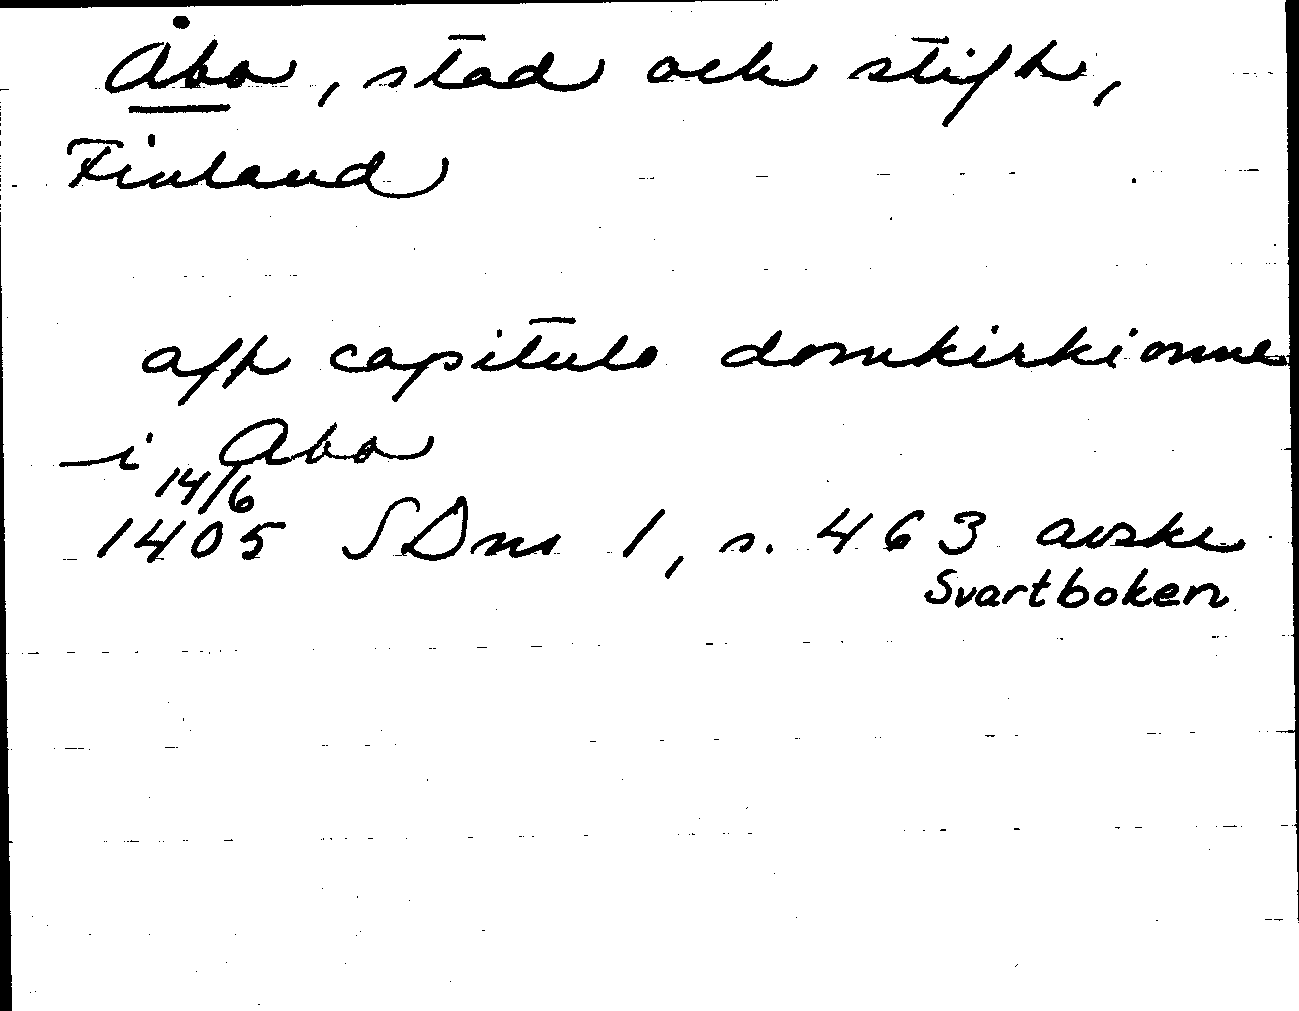 Åbo, stad och stift,
Finland
aff capitulo domkirkionne
i Abo
14/6
1405 SDns 1, s. 463 avskr
Svartboken